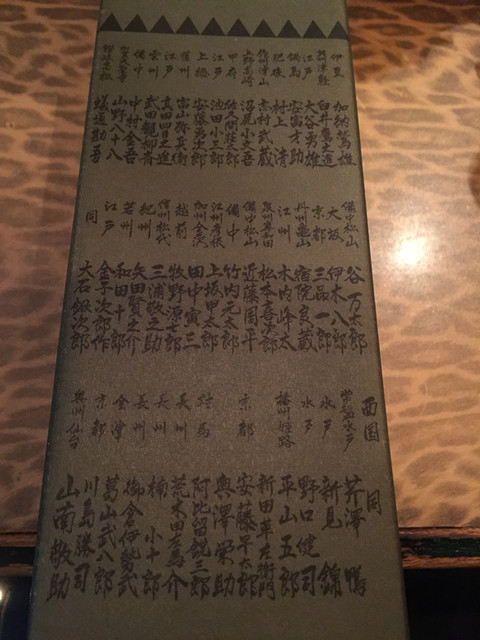 伊豆 加納鷲雄
白井鷲之進
江戸 大谷勇雄
安富才助
村上清
志村武蔵
甲府 佐久間桂三郎
江戸 池田小三郎
上総 安藤勇次郎
江戸 真田四目之進
雲州 武田観柳斎
備中 中村金吾
山野八十八
蟻通勘吾
備中松山 谷万太郎
大坂 伊木八郎
京都 三品一郎
丹州亀山 宿院良蔵
江州 木内峰太
松本喜次郎
備中松山 近藤周平
備中 竹内元太郎
上坂甲太郎
加州金沢 田中寅三
越前 牧野源七郎
信州松代 三浦敬之助
紀州 矢田賢之介
若州 和田十郎
江戸 金子次郎作
同 大石鍬次郎
西国
同
常盤水戸 芹澤鴨
水戸 新見錦
水戸 野口健司
播州姫路 平山五郎
新田革左衛門
京都 安藤早太郎
奥澤栄助
対馬 阿比留鋭三郎
長州 荒木田左馬介
長州 楠小十郎
長州 御倉伊勢武
会津 葛山武八郎
京都 川島勝司
奥州仙台 山南敬助